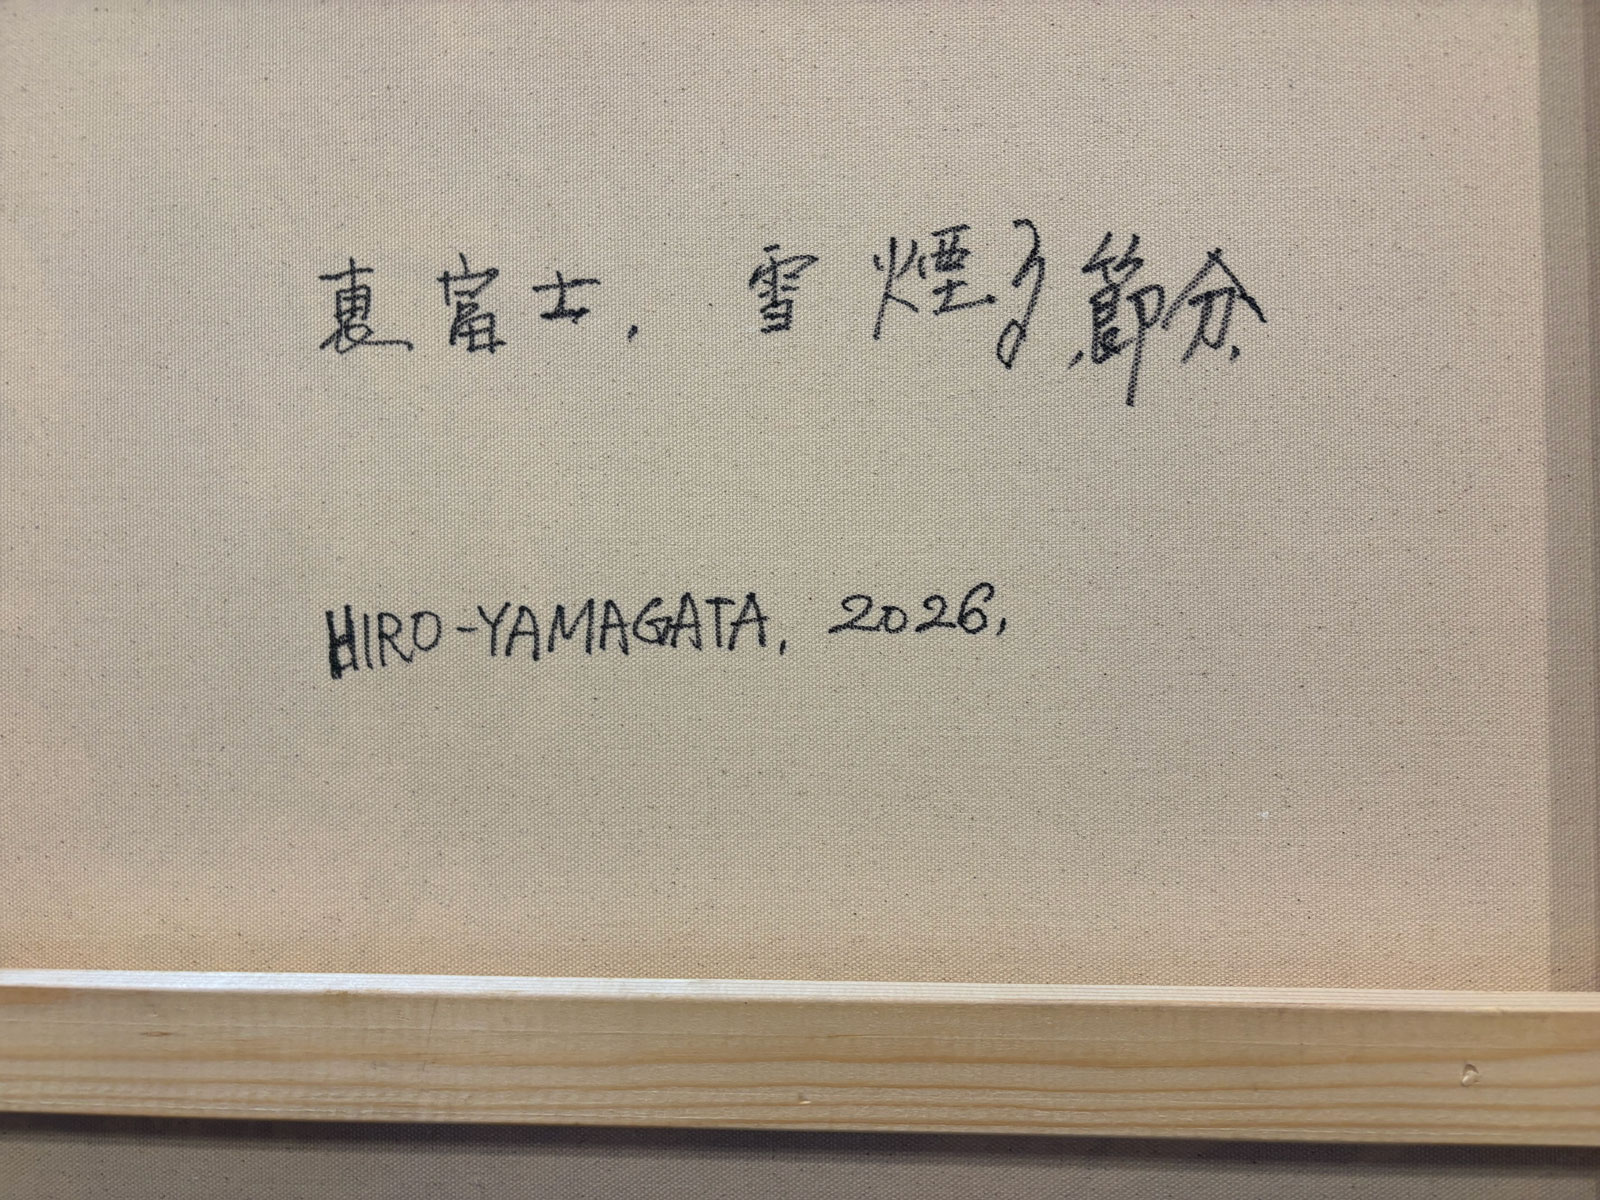 裏富士. 雪煙る節分.
HIRO-YAMAGATA, 2026,